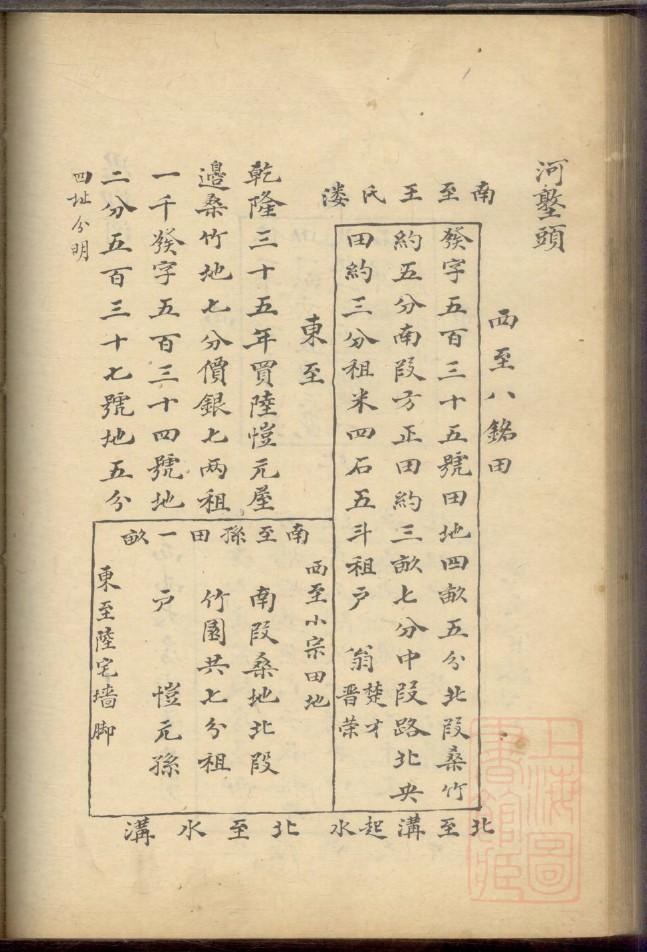 河壑頭
西至八銘田
南至王氏溇
癸字五百三十五號田地四畝五分北叚桑竹
約五分南叚方正田約三畝七分中叚路北央
田約三分祖米四石五斗祖户翁楚才晋荣
北至溝起水
東至
乾隆三十五年買陸愷元屋
邉桑竹地七分價銀七两祖
一千癸字五百三十四號地
二分五百三十七號地五分
四址分明
南至孫田一畝
西至小宗田地
南叚桑地北叚
竹園共七分祖
户愷元孫
東至陸宅墙脚
北至水溝
上海圖書館藏